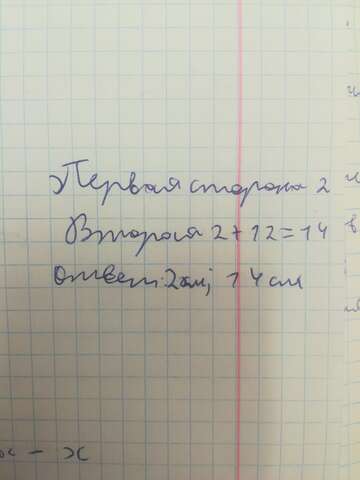 Первая сторона 2
Вторая 2 + 12 = 14
Ответ: 2см; 14 см
- x